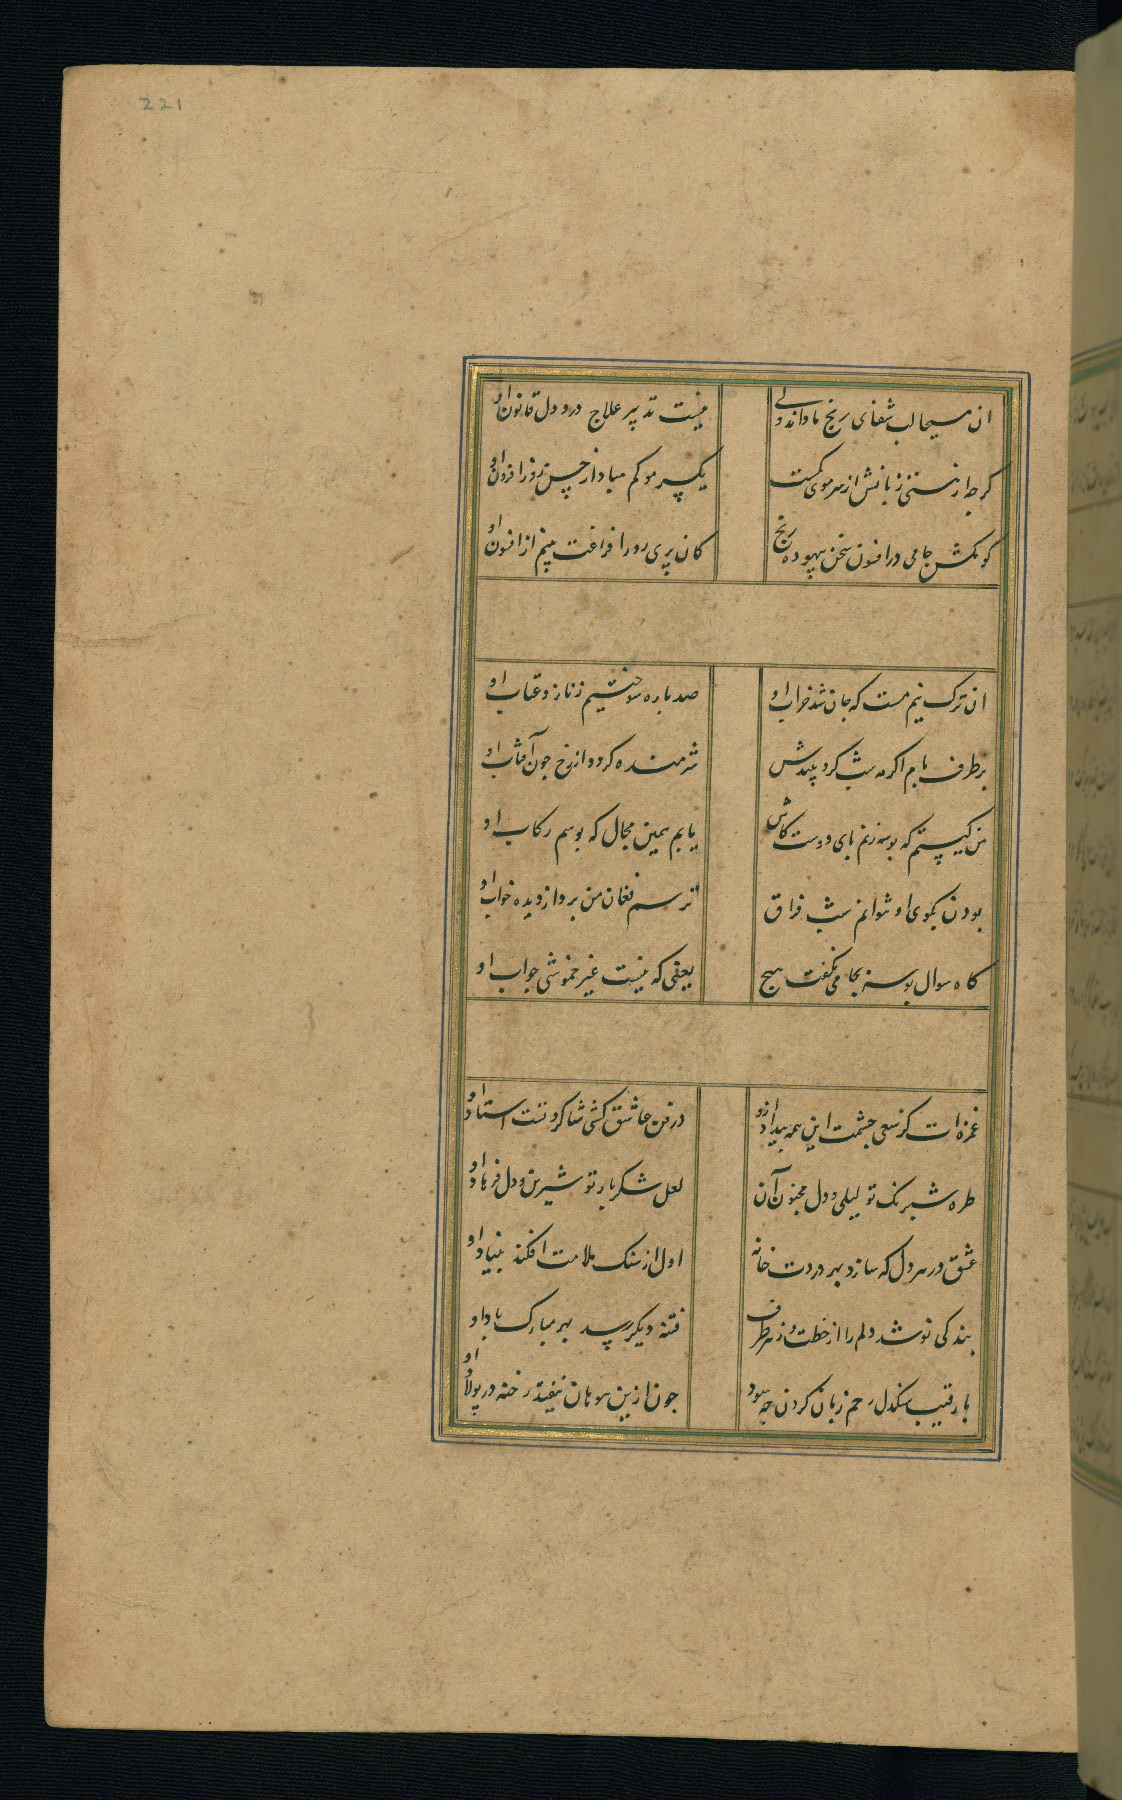 221
ان مسیحا لب شفای رنج ما داند ولی نیست تدبیر علاج درد دل قانون او
کرچه از هستی زبانش از سر موی کمست یکسر مو کم مبادا از حسن روز افزون او
کو مکش جامی در افسون سخن بیهوده رنج کان پری رو را فراغت بینم از افسون او
ان ترک نیم مست که جان شد خراب او صد باره سوختیم ز ناز و عتاب او
بر طرف بام اکر مه شب کرد بیندش شرمنده کردد از رخ چون آفتاب او
من کیستم که بوسه زنم پای دوست کاش یابم همین مجال که بوسم رکاب او
بودن بکوی او نتوانم شب فراق ترسم فغان من برد از دیده خواب او
کاه سوال بوسه بجامی نکفت هیچ یعنی که نیست غیر خموشی جواب او
غمزه ات کز سعی چشمت این همه بیداد ازو در فن عاشق کشی شاکرد تست استاد او
طره شبرنک تو لیلی و دل مجنون آن لعل شکر بار تو شیرین و دل فرهاد او
عشق در هر دل که سازد بهر دردت خانه اول از سنک ملامت افکند بنیاد او
بندکی نو شد دلم را از خطت وز هر طرف فتنه دیکر رسد بهر مبارک باد او
با رقیب سنکدل زخم زبان کردن چه سود چون ازین سوهان نیفتد رخنه در پولاد او